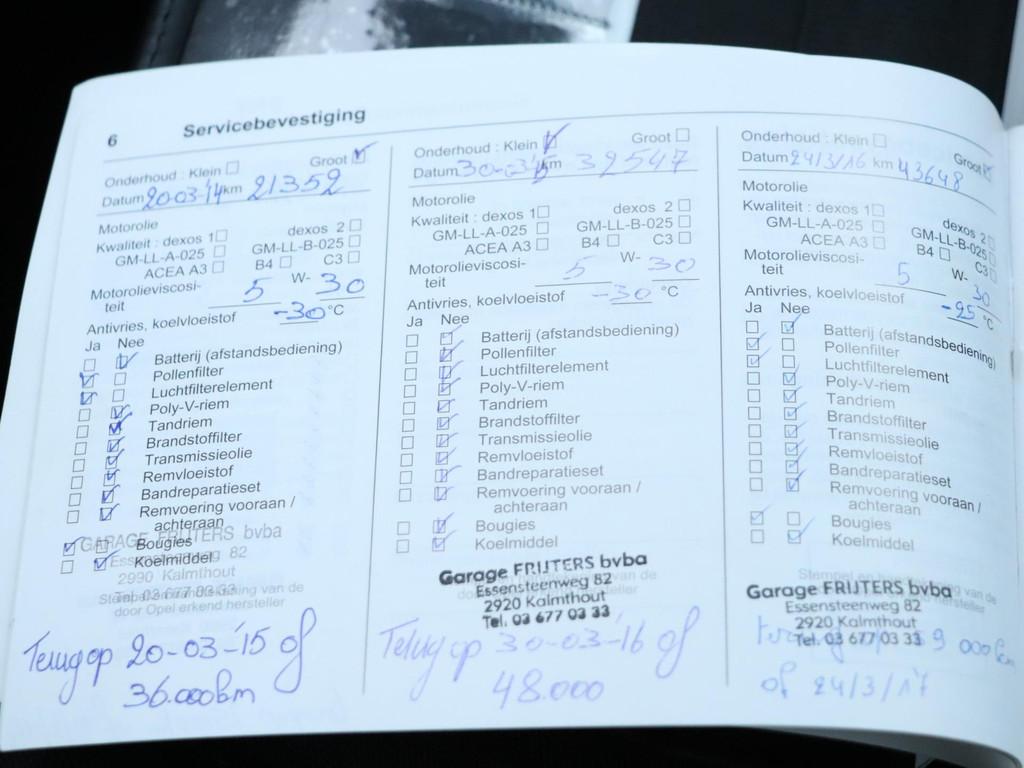 6 Servicebevestiging
Onderhoud : Klein Groot
Datum 20-03-'14 km 21352
Motorolie
Kwaliteit : dexos 1 dexos 2
GM-LL-A-025 GM-LL-B-025
ACEA A3 B4 C3
Motorolieviscosi-
teit 5 W- 30
Antivries, koelvloeistof -30 °C
Ja Nee
Batterij (afstandsbediening)
Pollenfilter
Luchtfilterelement
Poly-V-riem
Tandriem
Brandstoffilter
Transmissieolie
Remvloeistof
Bandreparatieset
Remvoering vooraan /
achteraan
Bougies
Koelmiddel
GARAGE FRIJTERS bvba
Essensteenweg 82
2990 Kalmthout
Tel. 03 677 03 33
door Opel erkend hersteller
Terug op 20-03-'15 of
36.000km
Onderhoud : Klein Groot
Datum 30-03-'15 km 32547
Motorolie
Kwaliteit : dexos 1 dexos 2
GM-LL-A-025 GM-LL-B-025
ACEA A3 B4 C3
Motorolieviscosi-
teit 5 W- 30
Antivries, koelvloeistof -30 °C
Ja Nee
Batterij (afstandsbediening)
Pollenfilter
Luchtfilterelement
Poly-V-riem
Tandriem
Brandstoffilter
Transmissieolie
Remvloeistof
Bandreparatieset
Remvoering vooraan /
achteraan
Bougies
Koelmiddel
Garage FRIJTERS bvba
Essensteenweg 82
2920 Kalmthout
Tel. 03 677 03 33
Terug op 30-03-'16 of
48.000
Onderhoud : Klein Groot
Datum 24/3/16 km 43648
Motorolie
Kwaliteit : dexos 1 dexos 2
GM-LL-A-025 GM-LL-B-025
ACEA A3 B4 C3
Motorolieviscosi-
teit 5 W- 30
Antivries, koelvloeistof -25 °C
Ja Nee
Batterij (afstandsbediening)
Pollenfilter
Luchtfilterelement
Poly-V-riem
Tandriem
Brandstoffilter
Transmissieolie
Remvloeistof
Bandreparatieset
Remvoering vooraan /
achteraan
Bougies
Koelmiddel
Garage FRIJTERS bvba
Essensteenweg 82
2920 Kalmthout
Tel. 03 677 03 33
9 000km
of 24/3/17